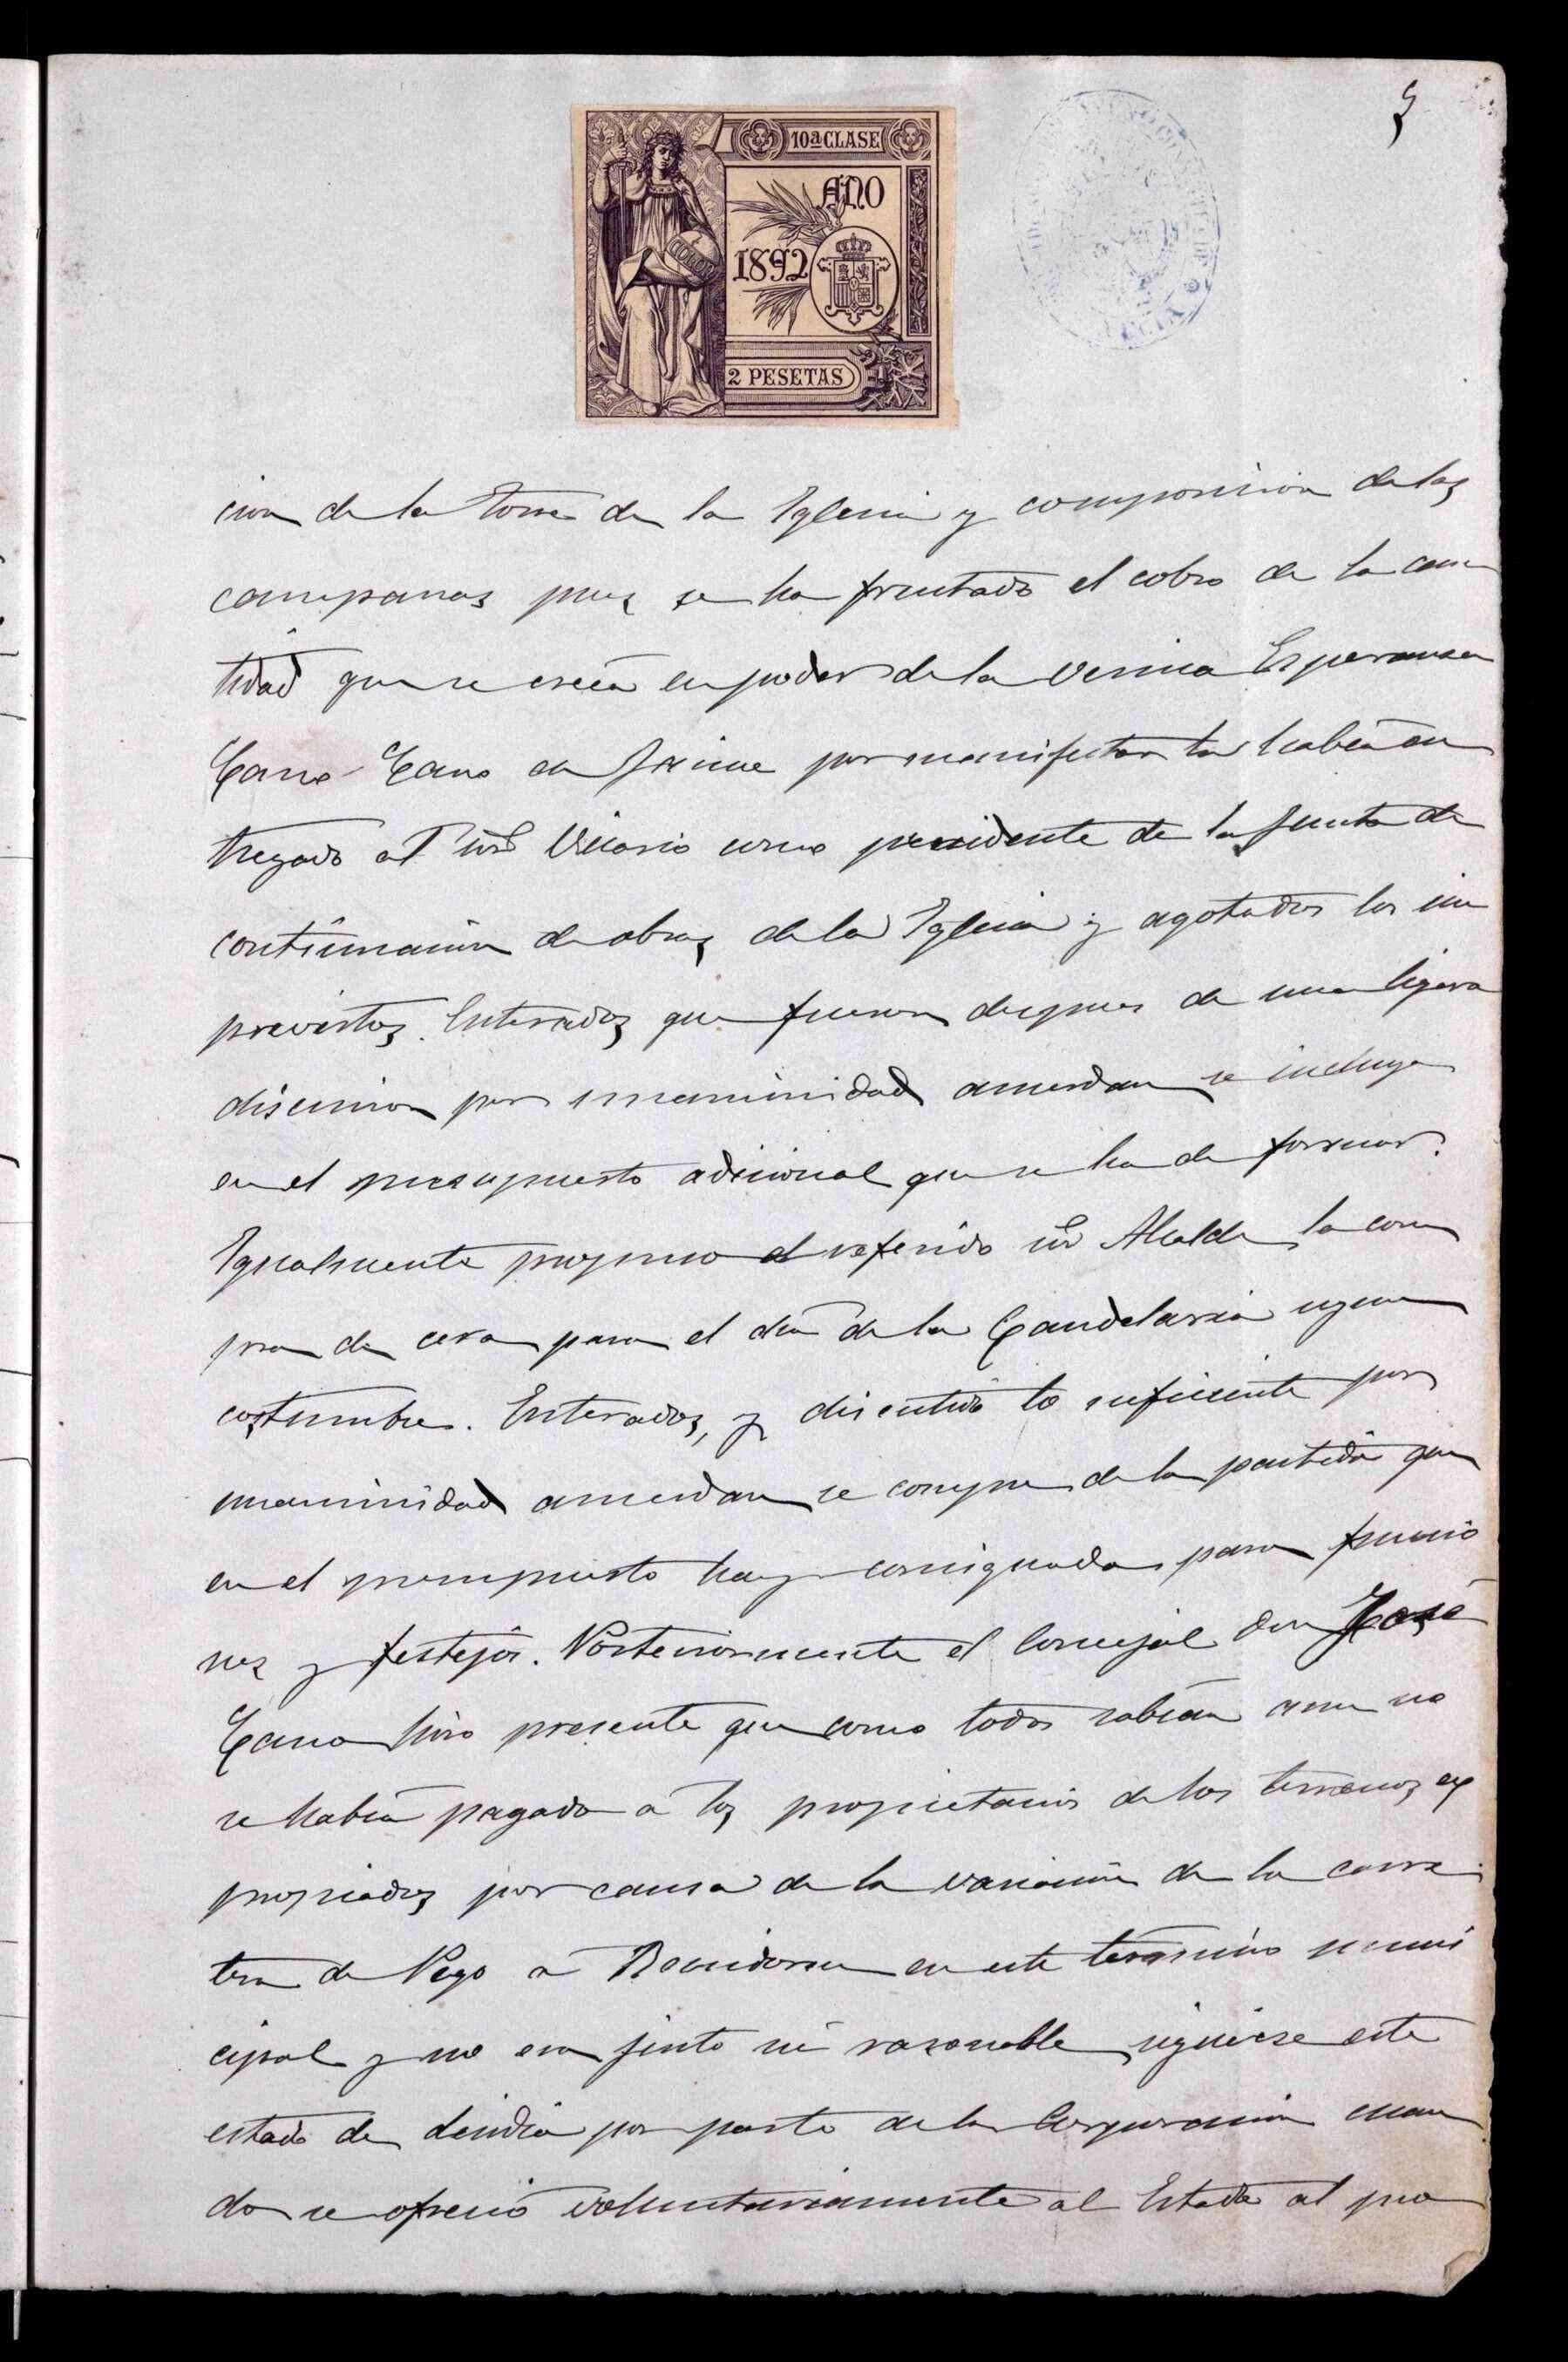 5
10ª CLASE
AÑO
1892
COLON
2 PESETAS
cion de la torre de la Iglesia y composicion de las
campanas pues se ha frustado el cobro de la can
tidad que se creia en poder de la vecina Esperanza
Cano Cano de Jaime por manifestar la habia en
tregado al Señor Vicario como presidente de la Junta de
continuación de obras de la Iglesia y agotados los im
previstos. Enterados que fueron despues de una ligera
discusion por unanimidad acuerdan se incluya
en el presupuesto adicional que se ha de formar.
Igualmente propuso el referido Sor Alcalde la com
pra de cera para el dia de la Candelaria segun
costumbre. Enterados, y discutido lo suficiente por
unanimidad acuerdan se compre de la partida que
en el presupuesto hay consignada para funcio
nes y festejos. Posteriormente el Concejal don José
Cano hizo presente que como todos sabian aun no
se habia pagado a los propietarios de los terrenos ex
propiados por causa de la variación de la carre
tera de Pego a Benidorm en este termino muni
cipal y no era justo ni razonable siguiese este
estado de desidia por parte de la Corporación cuan
do se ofreció voluntariamente al Estado al pro